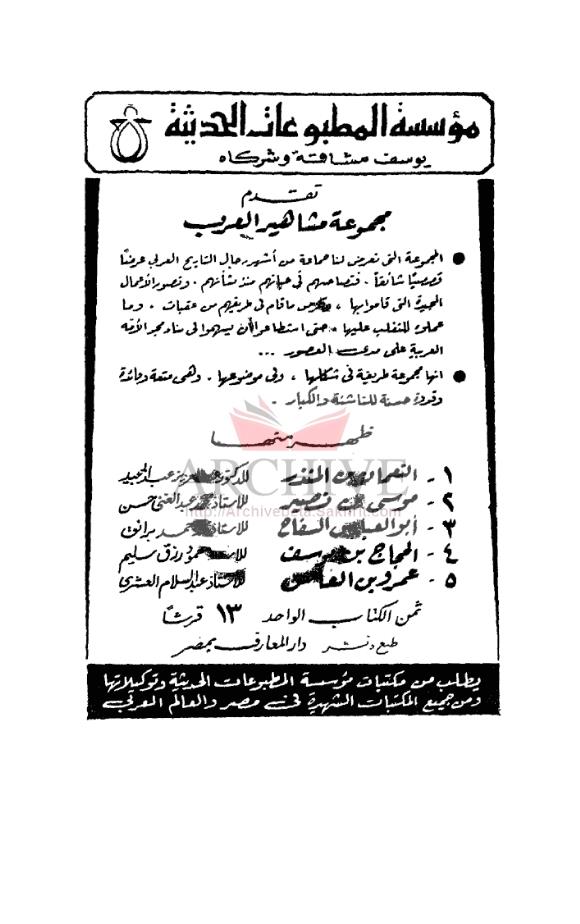 مؤسسة المطبوعات الحديثة
يوسف مشاقة وشركاه
تقدم
مجموعة مشاهير العرب
المجموعة التي تعرض لنا جماعة من أشهر رجال التاريخ العربي عرضًا
قصصيًا شائقًا . فتصاحبهم في حياتهم منذ نشأتهم . وتصور الأعمال
المجيدة التي قاموا بها ، ما قام في طريقهم من عقبات . وما
عملوه للتغلب عليها حتى استطاعوا أن يسهموا في بناء مجد الأمة
العربية على مدى العصور ...
انها مجموعة طريفة في شكلها ، وفي موضوعها . وهي متعة وفائدة
وقدوة حسنة للناشئة والكبار .
ظهر منها
ARCHIVE
http://Archivebeta.Sakhrit.com
١ - النعمان بن المنذر للدكتور عبد المجيد
٢ - موسى بن نصير للاستاذ عبد الغني حسن
٣ - أبو العباس السفاح للاستاذ برانق
٤ - الحجاج بن يوسف رزق سليم
٥ - عمرو بن العاص للاستاذ عبد السلام العشري
ثمن الكتاب الواحد ١٣ قرشًا
طبع ونشر دار المعارف بمصر
يطلب من مكتبات مؤسسة المطبوعات الحديثة وتوكيلاتها
ومن جميع المكتبات الشهيرة في مصر والعالم العربي